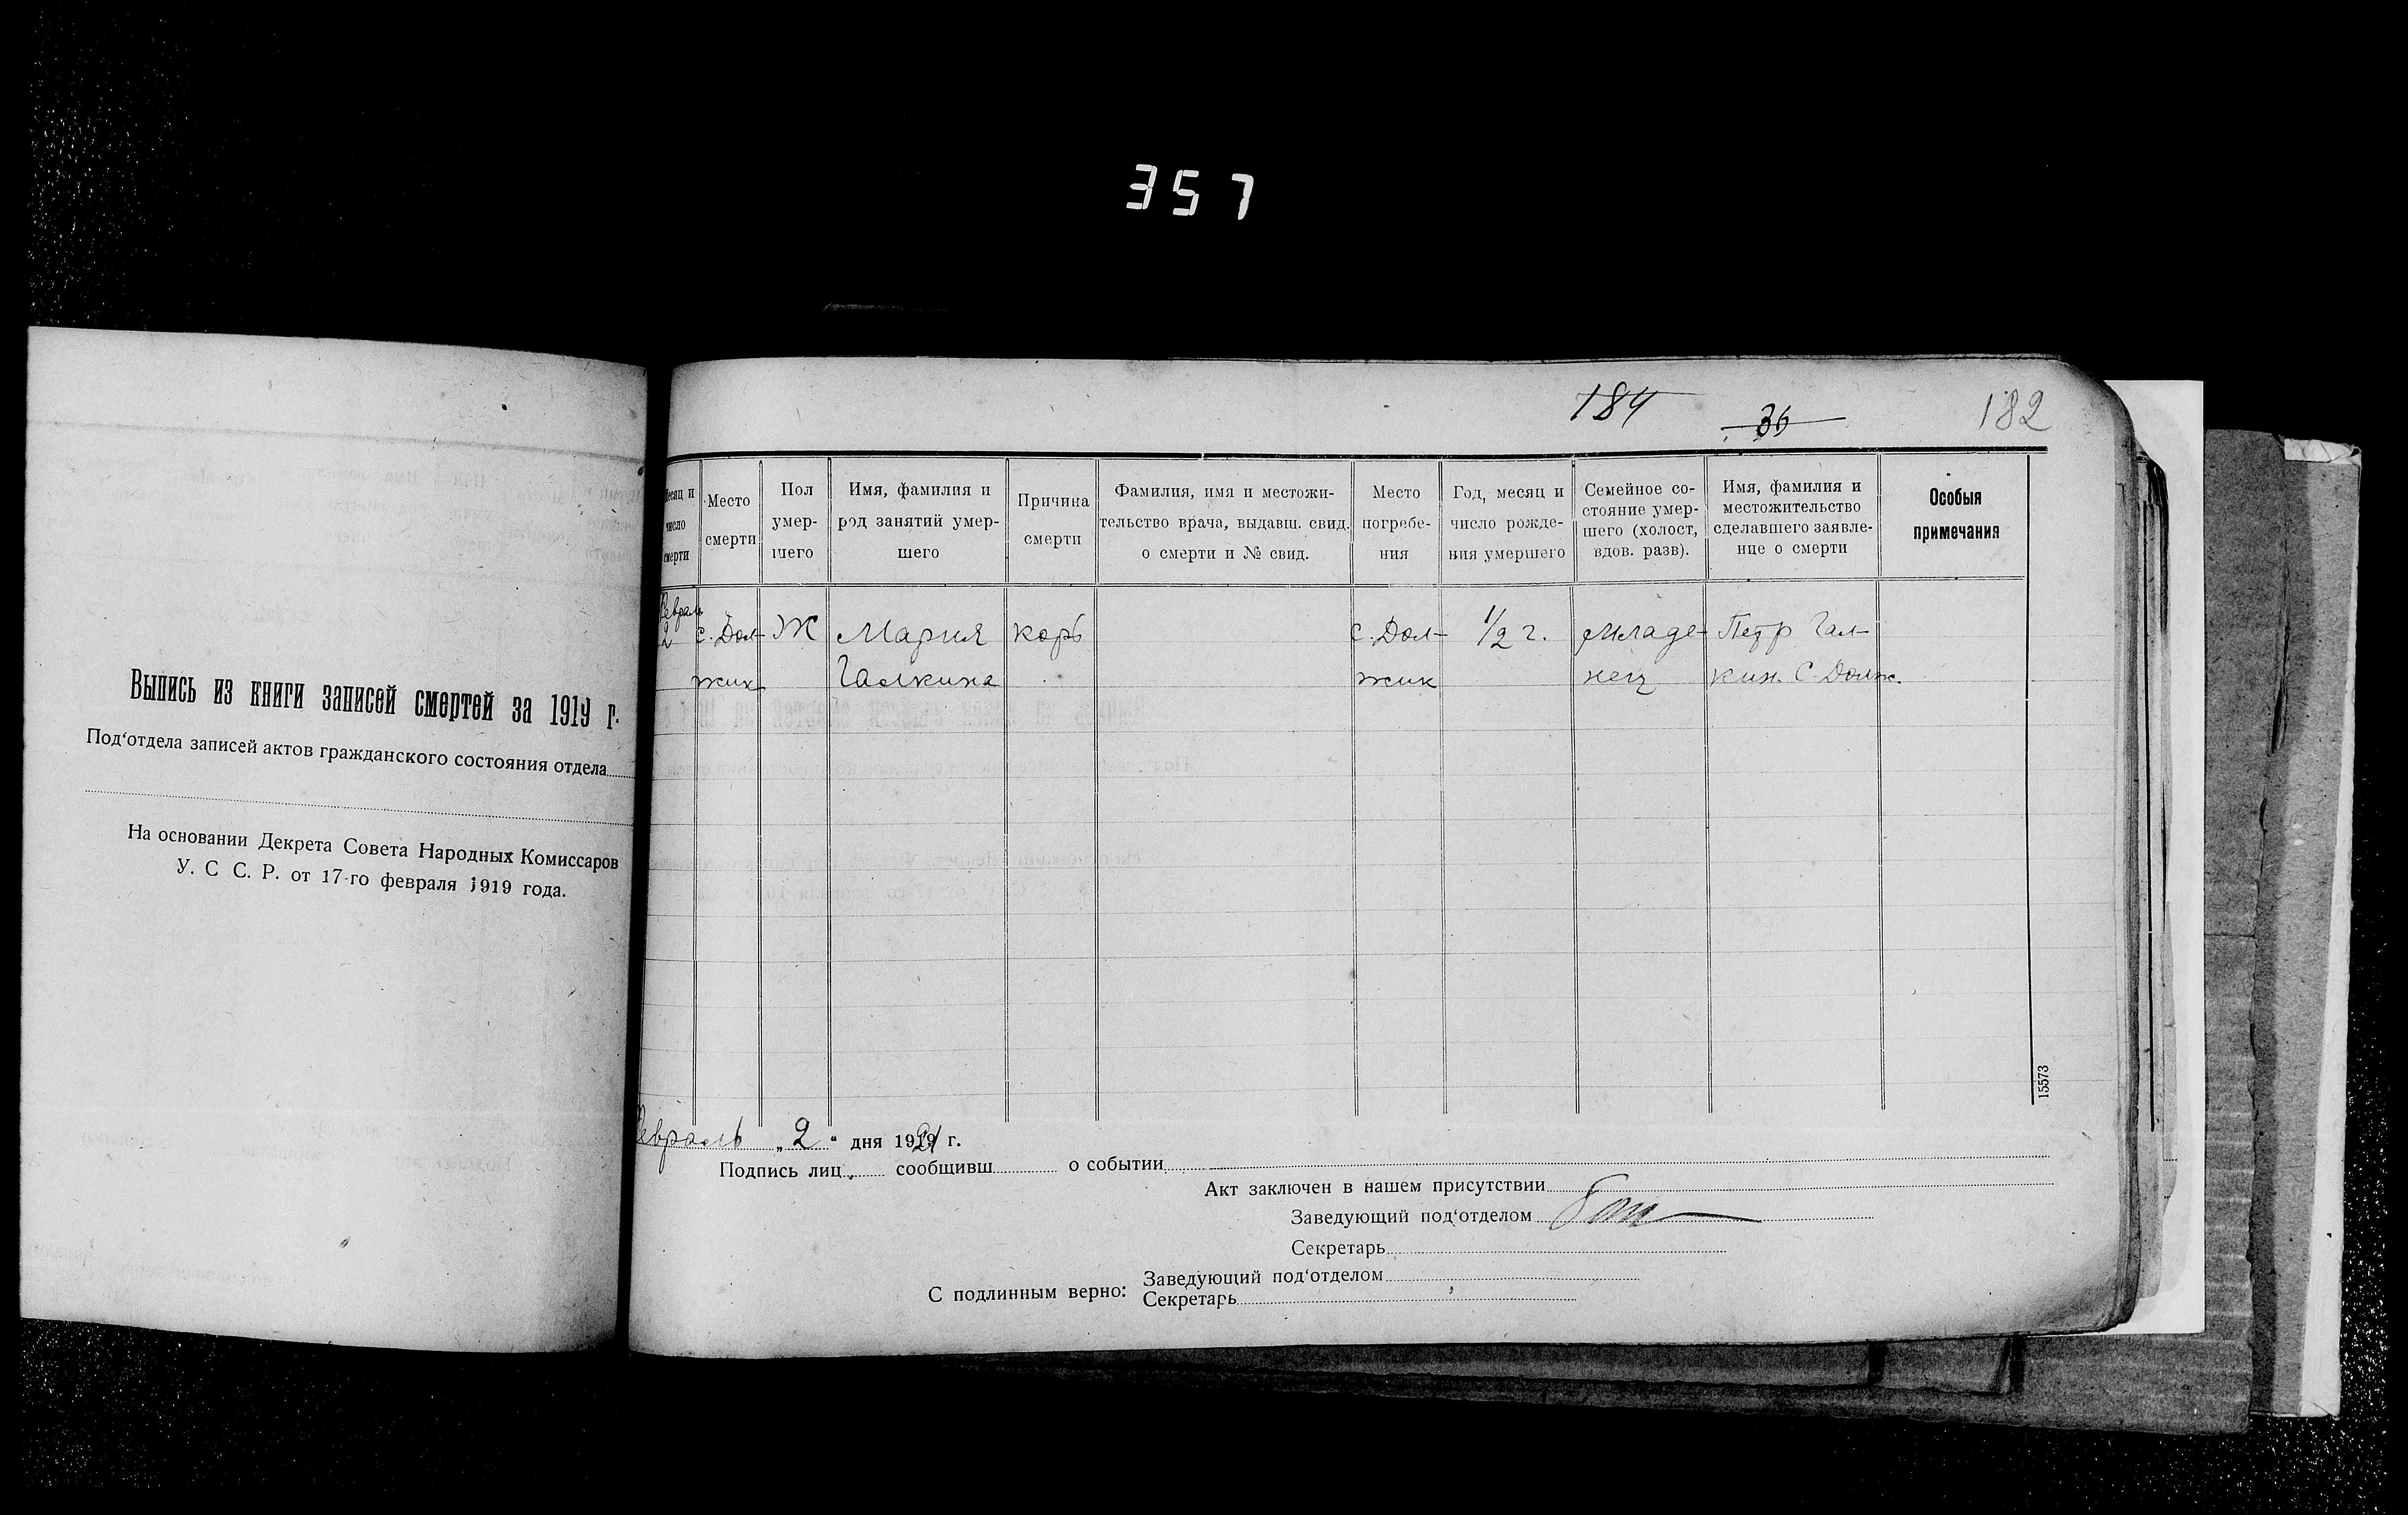 357
Выпись из книги записей смертей за 1919 г.
Под‘отдела записей актов гражданского состояния отдела
На основании Декрета Совета Народных Комиссаров
У. С С. Р. от 17-го февраля 1919 года.
184
36
182
Месяц и число смерти
Место смерти
Пол умер-шего
Имя, фамилия и род занятий умер-шего
Причина смерти
Фамилия, имя и местожи-тельство врача, выдавш. свид. о смерти и № свид.
Место погребе-ния
Год, месяц и число рожде-ния умершего
Семейное со-стояние умер-шего (холост, вдов. разв).
Имя, фамилия и местожительство сделавшего заявле-ние о смерти
Особыя примечания
Февраль
2 с. Дол- Ж Мария корь с. Дол- 1/2 г. Младе- Петр Гал-
жик Галкина жик нец кин. С. Должк.
15573
Февраль „2“ дня 1921 г.
Подпись лиц сообщивш о событии
Акт заключен в нашем присутствии
Заведующий под‘отделом
Секретарь
С подлинным верно: Заведующий под‘отделом
Секретарь